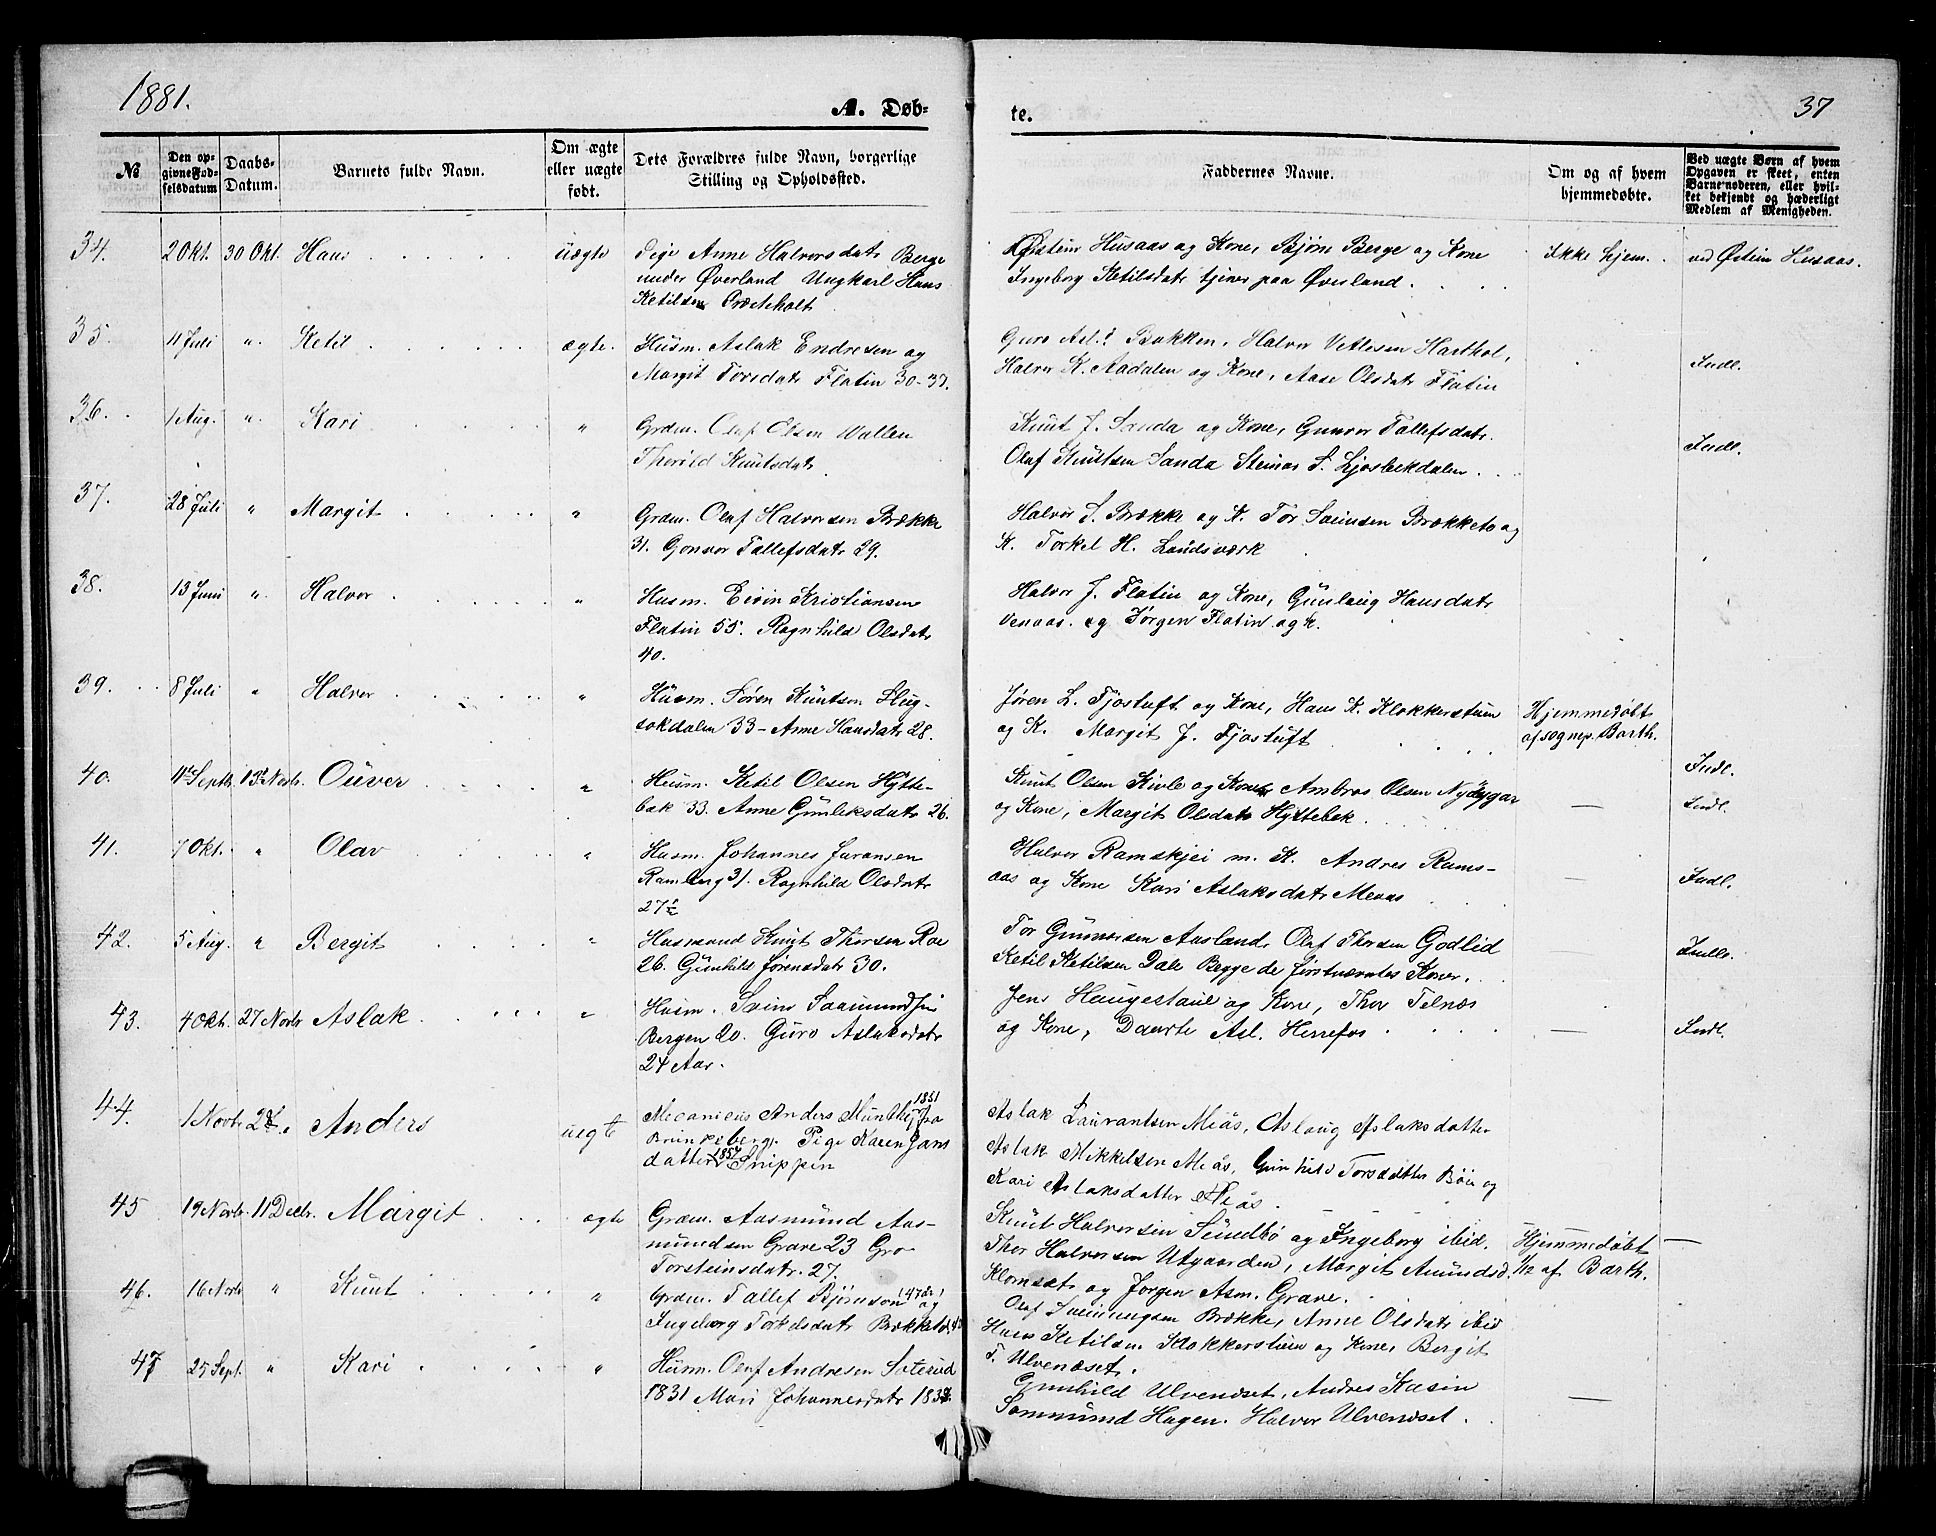 1881.
A. Døb-
te.
37
№
Den op-
givne Fød-
selsdatum
Daabs-
Datum.
Barnets fulde Navn.
Om ægte
eller uægte
født.
Dets Forældres fulde Navn, borgerlige
Stilling og Opholdssted.
Faddernes Navne.
Om og af hvem
hjemmedøbte.
Ved uægte Børn af hvem
Opgaven er skeet, enten
Barnemoderen, eller hvil-
ket bekjendt og hæderligt
Medlem af Menigheden.
34. 2 Okt. 30 Okt. Hans uægte
Pige Anne Halvorsdatr Berge
under Øverland Ungkarl Hans
Ketilsen Præsteholt
Østein Husaas og Kone, Bjøn Berge og Kone
Ingeborg Ketilsdatr tjener paa Øverland.
Ikke hjem. ved Østein Husaas.
35. 11 Juli " Ketil ægte.
Husm. Aslak Endresen og
Margit Torsdatr Flatin 30-37.
Guro Asl. Bakken, Halvor Vetlesen
Halvor K. Aadalen og Kone, Aase Olsdatr Flatin
Indl.
36. 1 Aug. " Kari "
Grdm. Olaf Olsen Wallen
Thorild Knutsdatr
Knut J. Sanda og Kone, Gunvor Tallefsdatr.
Olaf Knutsen Sanda Steinar S. Ljosbekdalen
Indl.
37. 28 Juli " Margit "
Grdm. Olaf Halvorsen Brække
31. Gonvor Tallefsdatr 29.
Halvor S. Brække og K. Tor Sveinsen Brækketo og
K. Torkel H. Landsværk
38. 13 Juni " Halvor "
Husm. Eivin Kristiansen
Flatin 55. Ragnhild Olsdatr
40.
Halvor J. Flatin og Kone, Gunlaug Hansdatr
Venaas. og Jørgen Flatin og K.
39. 8 Juli " Halvor "
Husm. Søren Knutsen Hug-
sokdalen 33 - Anne Hansdatr 28.
Jøren L. Fjostuft og Kone, Hans K. Klokkerstuen
og K. Margit J. Fjostuft
Hjemmedøbt
af sognep. Barth.
40. 11 Septbr. 13 Novbr. Ouver "
Husm. Ketil Olsen Hytte-
bæk 33. Anne Gunleksdatr 26.
Knut Olsen Kivle og Kone, Ambros Olsen Nybygar
og Kone, Margit Olsdatr Hyttebæk.
—
Indl.
Indl.
41. 7 Okt. " Olav "
Husm. Johannes Juransen
Ramberg 31. Ragnhild Olsdatr
27½
Halvor Ramskjei m. K. Andres Rams-
aas og Kone Kari Aslaksdatr Meaas
— Indl.
42. 5 Aug. " Bergit "
Husmand Knut Thorsen Roe
26. Gunhild Jørensdatr 30.
Tor Gunvorsen Aasland, Olaf Thorsen Godlid
Ketil Ketilsen Dale Begge de førstnævntes Koner.
— Indl.
43. 4 Okt. 27 Novbr Aslak "
Husm. Svein Saamundsen
Bergen 20. Guro Aslaksdatr
24 Aar.
Jens Haugestaul og Kone, Thor Telnæs
og Kone, Daarte Asl. Herrefos
— Indl.
44. 1 Novbr 27. Anders uegte
Mecanicus Anders Munthe 1851 fra
Brunkeberg. Pige Karen Jans
datter 1857 Snippen
Aslak Laurantsen Meås, Aslaug Aslaksdatter
Aslak Mikkelsen Meås, Gunhild Torsdatter Bøen og
Kari Aslaksdatter Meås.
45 19 Novbr. 11 Decbr. Margit ægte
Grdm. Aasmund Aas-
mundsen Grave 23 Gro
Torsteinsdatr. 27.
Knut Halvorsen Sundbø og Ingeborg ibid.
Thor Halvorsen Utgaarden, Margit Amundsd.
Klomset og Jørgen Asm. Grave.
Hjemmedøbt —
12/12 af Barth.
46. 16 Novbr " Knut "
Grdm. Tallef Bjørnson (47 år) og
Ingeborg Torkelsdatr Brækketo
Olaf Sveinungsen Brække, Anne Olsdatr ibid
Hans Ketilsen Klokkerstuen og Kone, Bergit
T. Ulvenæset.
47 25 Sept. " Kari "
Husm. Olaf Andresen Sæterud
1831 Mari Johannesdatr 1838.
Gunhild Ulvenæset, Andres Kasin
Sammund Hagen. Halvor Ulvenæset.
—